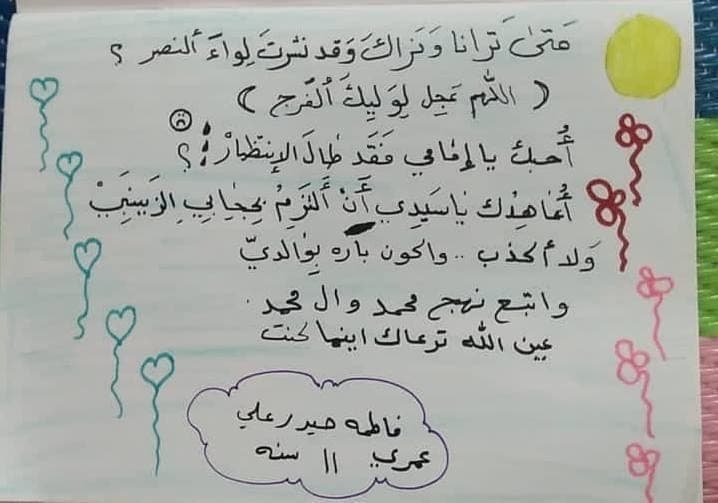 مَتىٰ تَرانا وَنَراكَ وَقد نشرتَ لِواءَ ألنصر ؟
( اللهم عجل لِوَلِيكَ الفَرج )
أُحبك يا إمامي فَقَد طالَ الإِنتظارْ !؟
أُعاهِدُك ياسَيدِي أَنْ أَلتَزِمُ بِحِجابِي الزَينَبِيْ
وَلا أكذب .. واكون باره بِوالديّ
واتبع نهج محمد وال محمد .
عين الله ترعاك اينما كنت
فاطمه حيدر علي
عمري 11 سنه